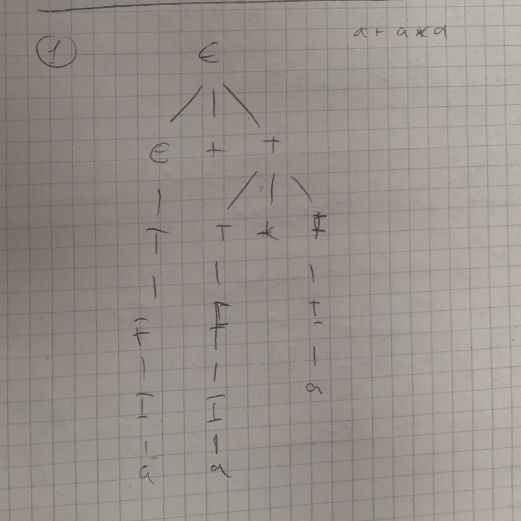 ① a + a * a
E
E + T
T T * F
F F I
I I a
a a